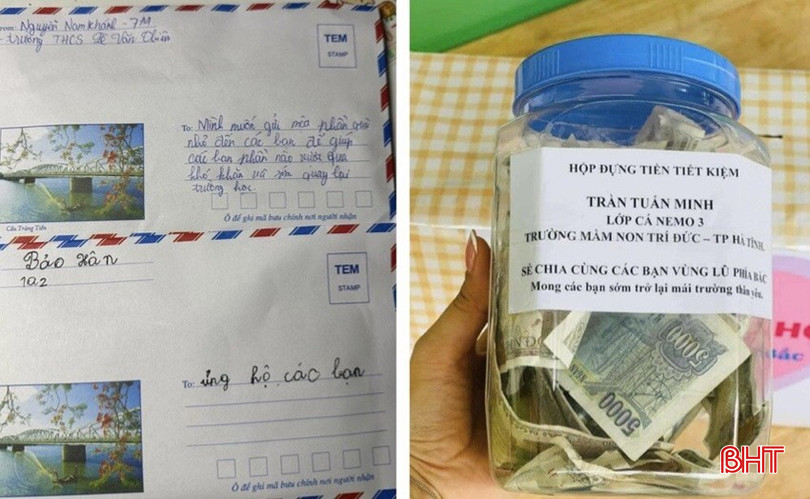 From: Nguyễn Nam Khánh - 7M
trường THCS Lê Văn Thiêm
TEM
STAMP
To: Mình muốn gửi món phần quà
nhỏ đến các bạn để giúp
các bạn phần nào vượt qua
khó khăn và sớm quay lại
trường học.
Cầu Tràng Tiền
Ô để ghi mã bưu chính nơi người nhận
Bảo Hân
1a2
TEM
STAMP
To: ủng hộ các bạn
Ô để ghi mã bưu chính nơi người nhận
HỘP ĐỰNG TIỀN TIẾT KIỆM
TRẦN TUẤN MINH
LỚP CÁ NEMO 3
TRƯỜNG MẦM NON TRÍ ĐỨC – TP HÀ TĨNH.
SẺ CHIA CÙNG CÁC BẠN VÙNG LŨ PHÍA BẮC
Mong các bạn sớm trở lại mái trường thân yêu.
5000
5000
BHT